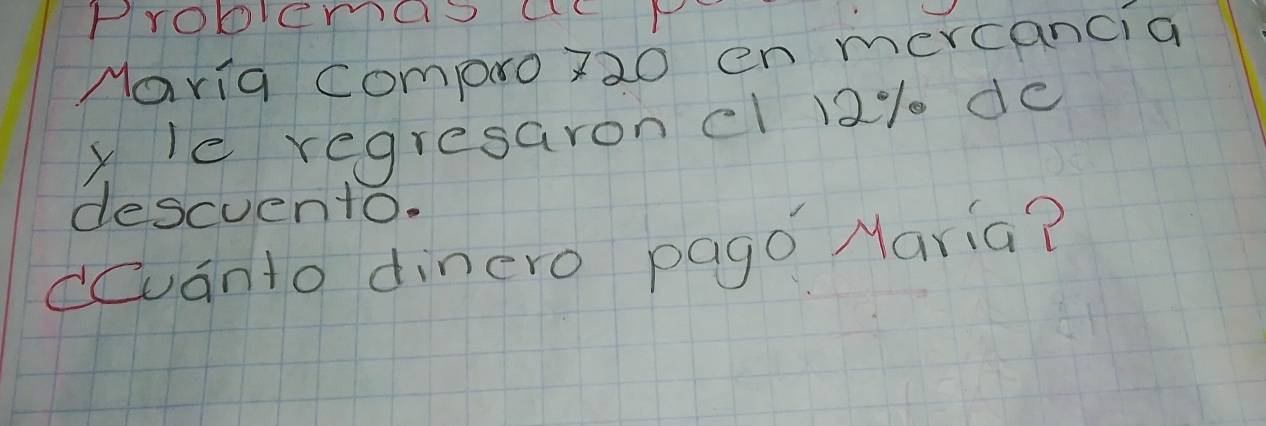 Problemas de
María comparo 720 en mercancía
y le regresaron el 12% de
descuento.
¿Cuánto dinero pagó María?